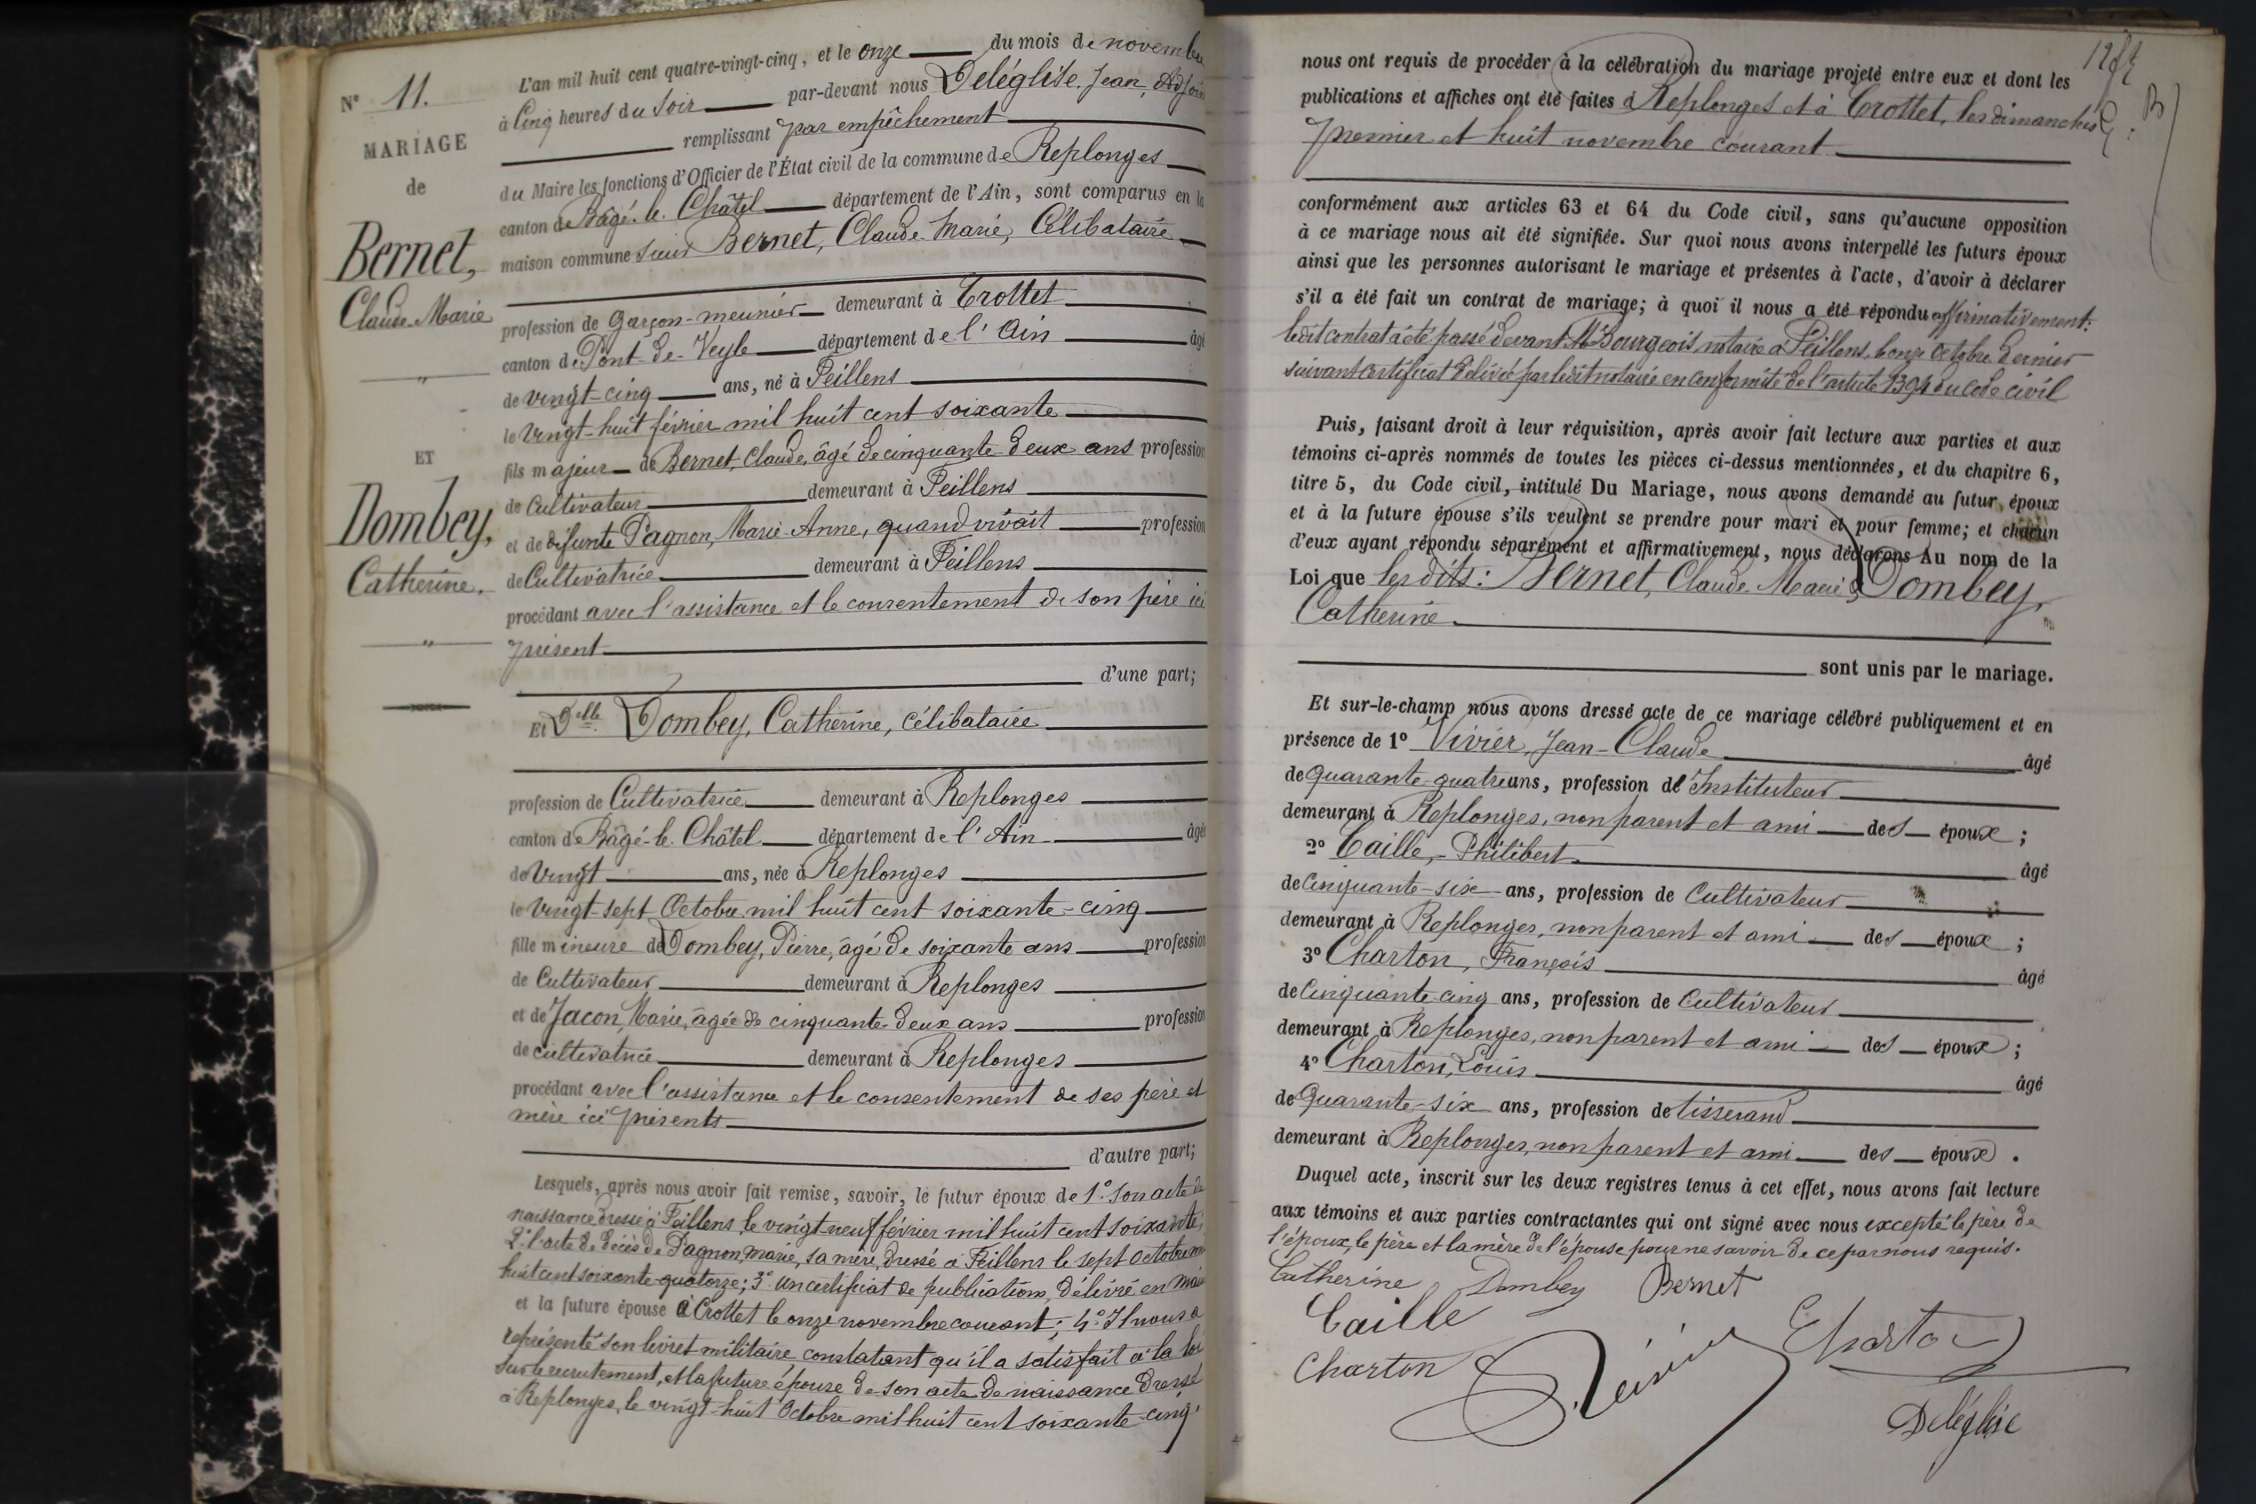 N° 11.
MARIAGE
de
Bernet,
Claude-Marie
"
ET
Dombey,
Catherine.
"
L'an mil huit cent quatre-vingt-cinq, et le onze du mois de novembre
à Cinq heures du Soir par-devant nous Deléglise, Jean, Adjoint
remplissant par empêchement
du Maire les fonctions d'Officier de l'État civil de la commune de Replonges
canton de Bâgé-le-Châtel département de l'Ain, sont comparus en la
maison commune sieur Bernet, Claude-Marie, Célibataire
profession de garçon-meunier demeurant à Crottet
canton de Pont-de-Veyle département de l'Ain âgé
de vingt-cinq ans, né à Feillens
le vingt-huit février mil huit cent soixante
fils majeur de Bernet, Claude, âgé de cinquante-deux ans profession
de Cultivateur demeurant à Feillens
et de défunte Pagnon, Marie-Anne, quand vivait profession
de Cultivatrice demeurant à Feillens
procédant avec l'assistance et le consentement de son père ici
présent
d'une part;
Et Delle Dombey, Catherine, célibataire
profession de Cultivatrice demeurant à Replonges
canton de Bâgé-le-Châtel département de l'Ain âgée
de vingt ans, née à Replonges
le vingt-sept Octobre mil huit cent soixante-cinq
fille mineure de Dombey, Pierre, âgé de soixante ans profession
de Cultivateur demeurant à Replonges
et de Jacon, Marie, âgée de cinquante-deux ans profession
de cultivatrice demeurant à Replonges
procédant avec l'assistance et le consentement de ses père et
mère ici présents
d'autre part;
Lesquels, après nous avoir fait remise, savoir, le futur époux de 1° son acte de
naissance dressé à Feillens le vingt-neuf février mil huit cent soixante;
2° l'acte de décès de Pagnon, Marie, sa mère, dressé à Feillens le sept Octobre mil
huit cent soixante-quatorze; 3° un certificat de publications, délivré en mairie
et la future épouse à Crottet le onze novembre courant; 4° Il nous a
représenté son livret militaire constatant qu'il a satisfait à la loi
sur le recrutement, et la future épouse de son acte de naissance dressé
à Replonges, le vingt-huit Octobre mil huit cent soixante-cinq.
nous ont requis de procéder à la célébration du mariage projeté entre eux et dont les
publications et affiches ont été faites à Replonges et à Crottet, les dimanches
premier et huit novembre courant
conformément aux articles 63 et 64 du Code civil, sans qu'aucune opposition
à ce mariage nous ait été signifiée. Sur quoi nous avons interpellé les futurs époux
ainsi que les personnes autorisant le mariage et présentes à l'acte, d'avoir à déclarer
s'il a été fait un contrat de mariage; à quoi il nous a été répondu affirmativement:
ledit contrat a été passé devant Me Bourgeois, notaire à Feillens, le onze Octobre dernier
suivant certificat délivré par ledit notaire en conformité de l'article 1394 du Code civil
Puis, faisant droit à leur réquisition, après avoir fait lecture aux parties et aux
témoins ci-après nommés de toutes les pièces ci-dessus mentionnées, et du chapitre 6,
titre 5, du Code civil, intitulé Du Mariage, nous avons demandé au futur époux
et à la future épouse s'ils veulent se prendre pour mari et pour femme; et chacun
d'eux ayant répondu séparément et affirmativement, nous déclarons Au nom de la
Loi que les dits: Bernet, Claude-Marie & Dombey,
Catherine
sont unis par le mariage.
Et sur-le-champ nous avons dressé acte de ce mariage célébré publiquement et en
présence de 1° Vivier, Jean-Claude âgé
de quarante-quatre ans, profession de Instituteur
demeurant à Replonges, non parent et ami des époux;
2° Caille, Philibert âgé
de Cinquante-six ans, profession de Cultivateur
demeurant à Replonges, non parent et ami des époux;
3° Charton, François âgé
de Cinquante-cinq ans, profession de Cultivateur
demeurant à Replonges, non parent et ami des époux;
4° Charton, Louis âgé
de Quarante-six ans, profession de tisserand
demeurant à Replonges, non parent et ami des époux.
Duquel acte, inscrit sur les deux registres tenus à cet effet, nous avons fait lecture
aux témoins et aux parties contractantes qui ont signé avec nous excepté le père de
l'époux, le père et la mère de l'épouse pour ne savoir de ce par nous requis.
Catherine Dombey Bernet
Caille
Charton
Charton
Deléglise